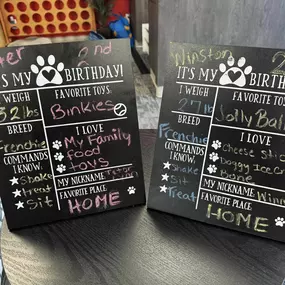 2nd
'S MY BIRTHDAY!
I WEIGH
FAVORITE TOYS
32 lbs
Binkies
BREED
Frenchie
I LOVE
My Family
Food
toys
COMMANDS I KNOW:
Shake
treat
Sit
MY NICKNAME
FAVORITE PLACE
HOME
Winston 2
IT'S MY BIRTH
I WEIGH
FAVORITE TOYS
27 lb
Jolly Ball
BREED
Frenchie
I LOVE
Cheese stic
Doggy Ice Cr
Bone
COMMANDS I KNOW:
Shake
Sit
Treat
MY NICKNAME
FAVORITE PLACE
HOME